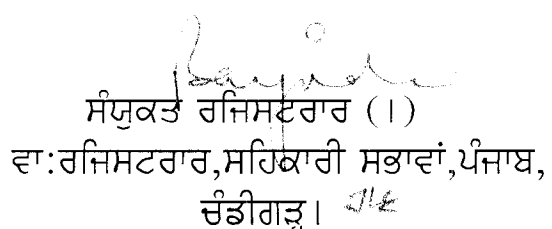 ਸੰਯੁਕਤ ਰਜਿਸਟਰਾਰ (।)
ਵਾ:ਰਜਿਸਟਰਾਰ,ਸਹਿਕਾਰੀ ਸਭਾਵਾਂ,ਪੰਜਾਬ,
ਚੰਡੀਗੜ੍ਹ।